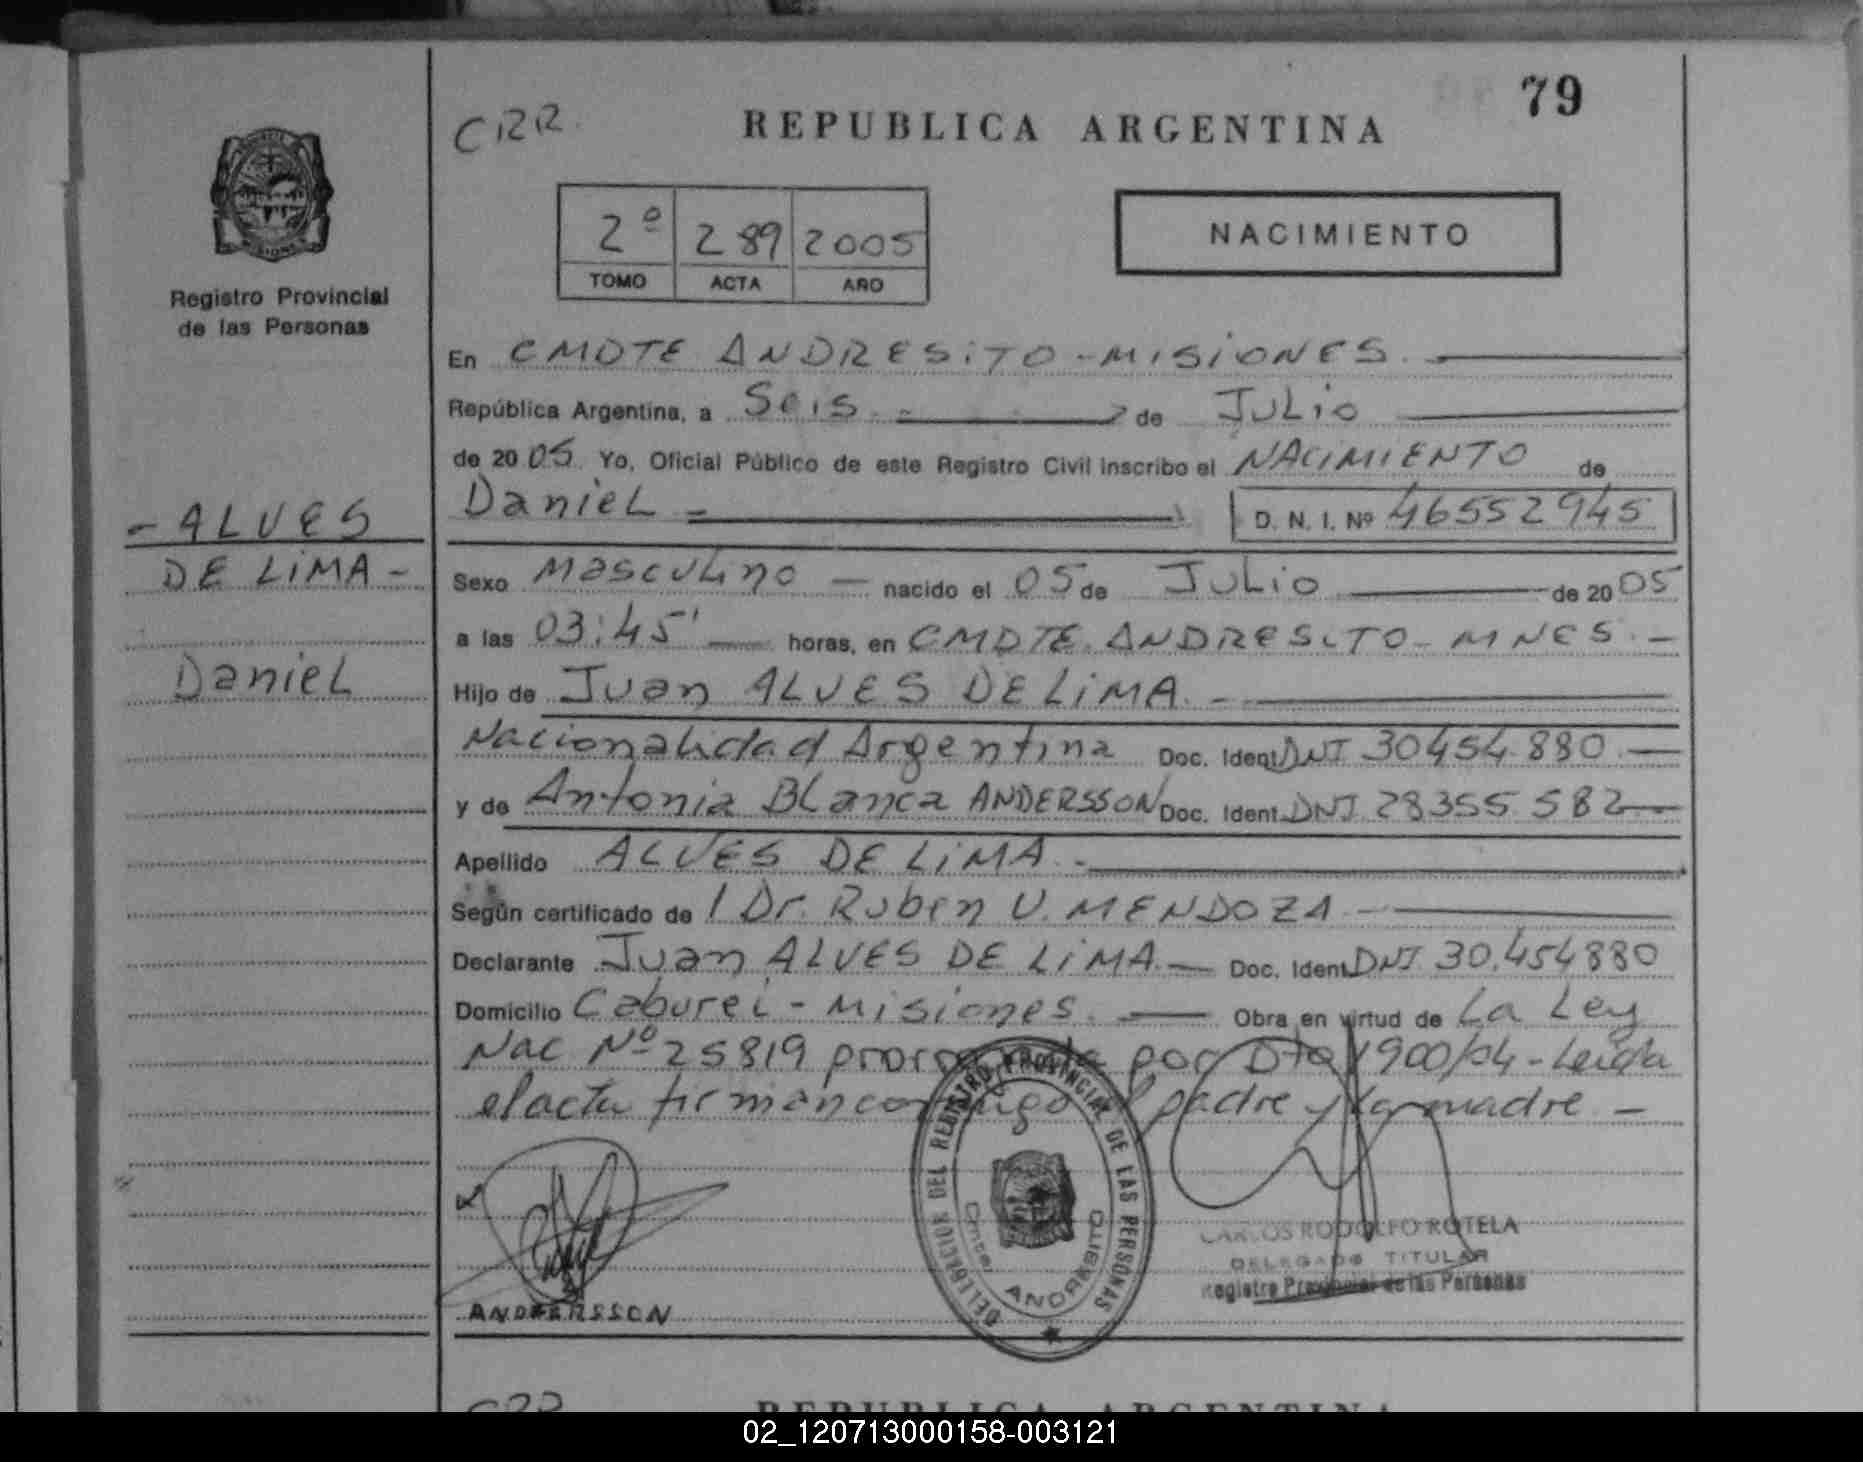 79
CRR.
REPUBLICA ARGENTINA
2º 289 2005
TOMO ACTA AÑO
NACIMIENTO
Registro Provincial
de las Personas
En CMDTE ANDRESiTO - MISIONES.
República Argentina, a Seis.- de JuLio
de 2005 Yo, Oficial Público de este Registro Civil inscribo el NACIMIENTO de
DanieL D. N. I. Nº 46552945
- ALVES
DE LiMA -
DanieL
Sexo Masculino nacido el 05 de JuLio de 2005
a las 03:45' horas, en CMDTE. ANDRESiTO - MNES. -
Hijo de Juan ALVES DE LiMA. -
Nacionalidad Argentina Doc. Ident. DNI 30454.880.
y de Antonia BLanca ANDERSSON Doc. Ident. DNI. 28355.582
Apellido ALVES DE LiMA.-
Según certificado de 1 Dr. Ruben U. MENDOZA.-
Declarante Juan ALVES DE LiMA. Doc. Ident. DNI. 30.454880
Domicilio Caburei - Misiones. Obra en virtud de La Ley
Nac Nº 25819 por Dto 1900/04 - Leida
el acta firman padre y la madre. -
DELEGACION DEL REGISTRO PROVINCIAL DE LAS PERSONAS
Cmte. ANDRESITO
ANDERSSON
CARLOS RODOLFO ROTELA
DELEGADO TITULAR
Registro Provincial de las Personas
CRR
REPUBLICA ARGENTINA
02_120713000158-003121